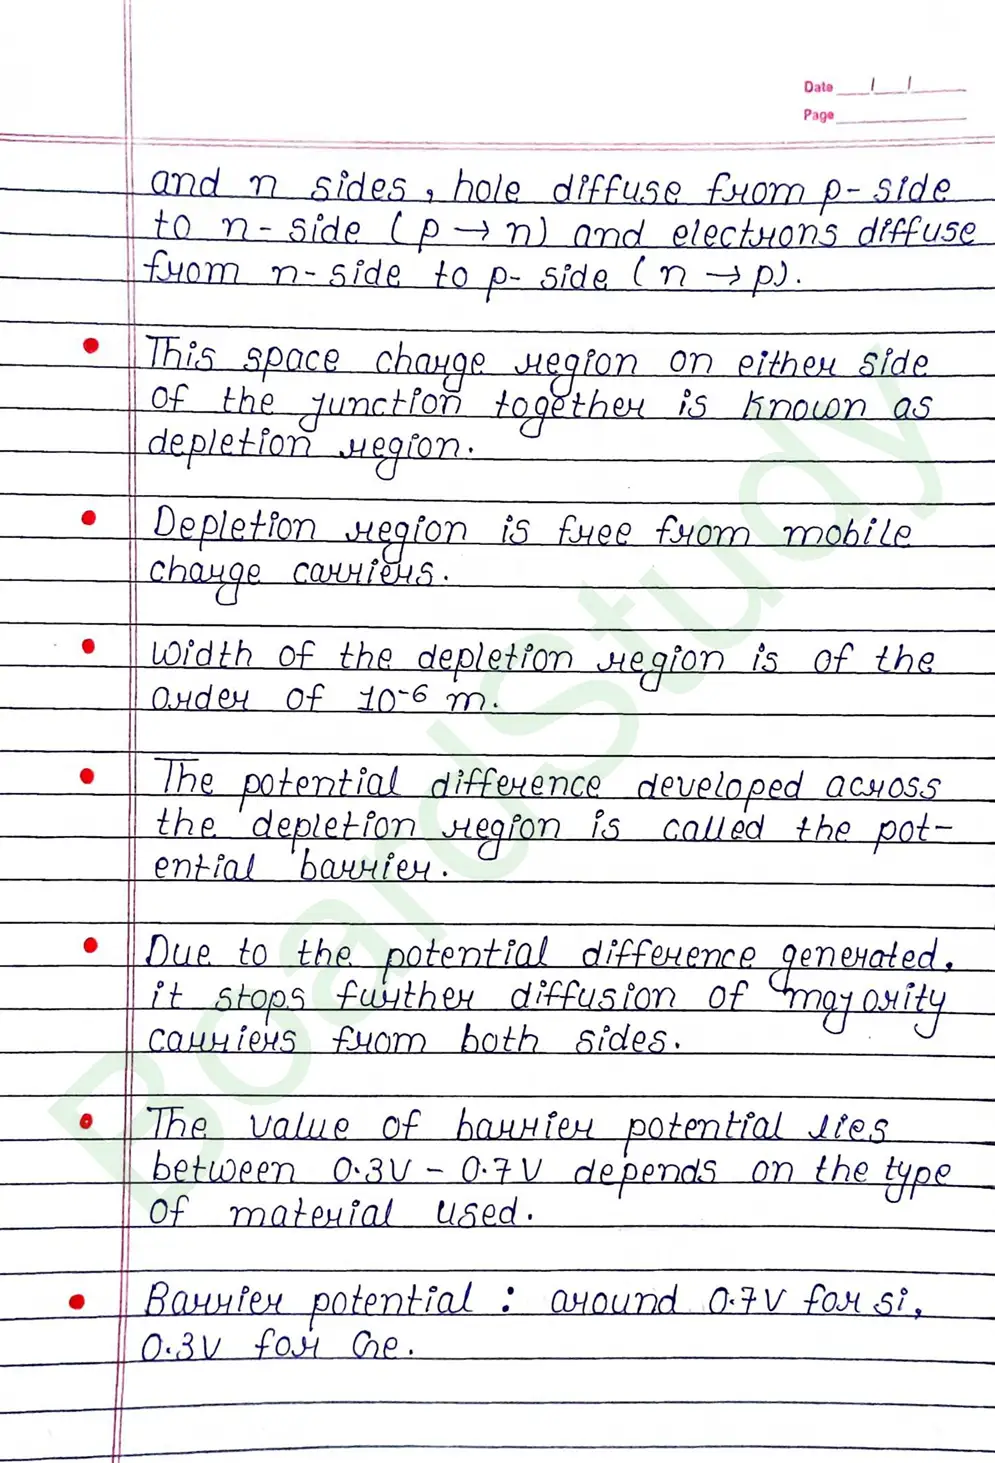 Date __/__/____
Page ________
and n sides, hole diffuse from p-side
to n-side (p → n) and electrons diffuse
from n-side to p-side (n → p).
• This space charge region on either side
of the junction together is known as
depletion region.
• Depletion region is free from mobile
charge carriers.
• Width of the depletion region is of the
order of 10⁻⁶ m.
• The potential difference developed across
the depletion region is called the pot-
ential barrier.
• Due to the potential difference generated,
it stops further diffusion of majority
carriers from both sides.
• The value of barrier potential lies
between 0.3V - 0.7V depends on the type
of material used.
• Barrier potential : around 0.7V for si,
0.3V for Ge.
BoardStudy